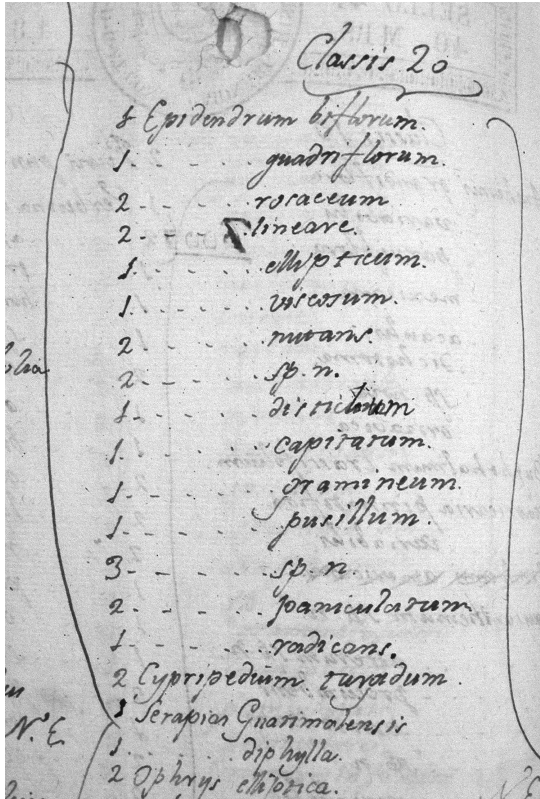 Classis 20
1 Epidendrum biflorum.
1. - - . quadriflorum.
2 - - . . rosaceum.
2. - - lineare.
1. - - . . . ellypticum.
1. - . . . . viscosum.
2 - - . . . nutans.
2 - - . . . sp. n.
1 - - . . . distichum
1. - - . . . capitatum.
1 - - . . . gramineum.
1 - - . . . pusillum.
3 - - - . . sp. n.
2. - - - . . paniculatum.
1 - - - . . radicans.
2 Cypripedium
1 Serapias Guatimalensis
1. . . . . diphylla.
2 Ophrys elliptica.
N.E
N.E